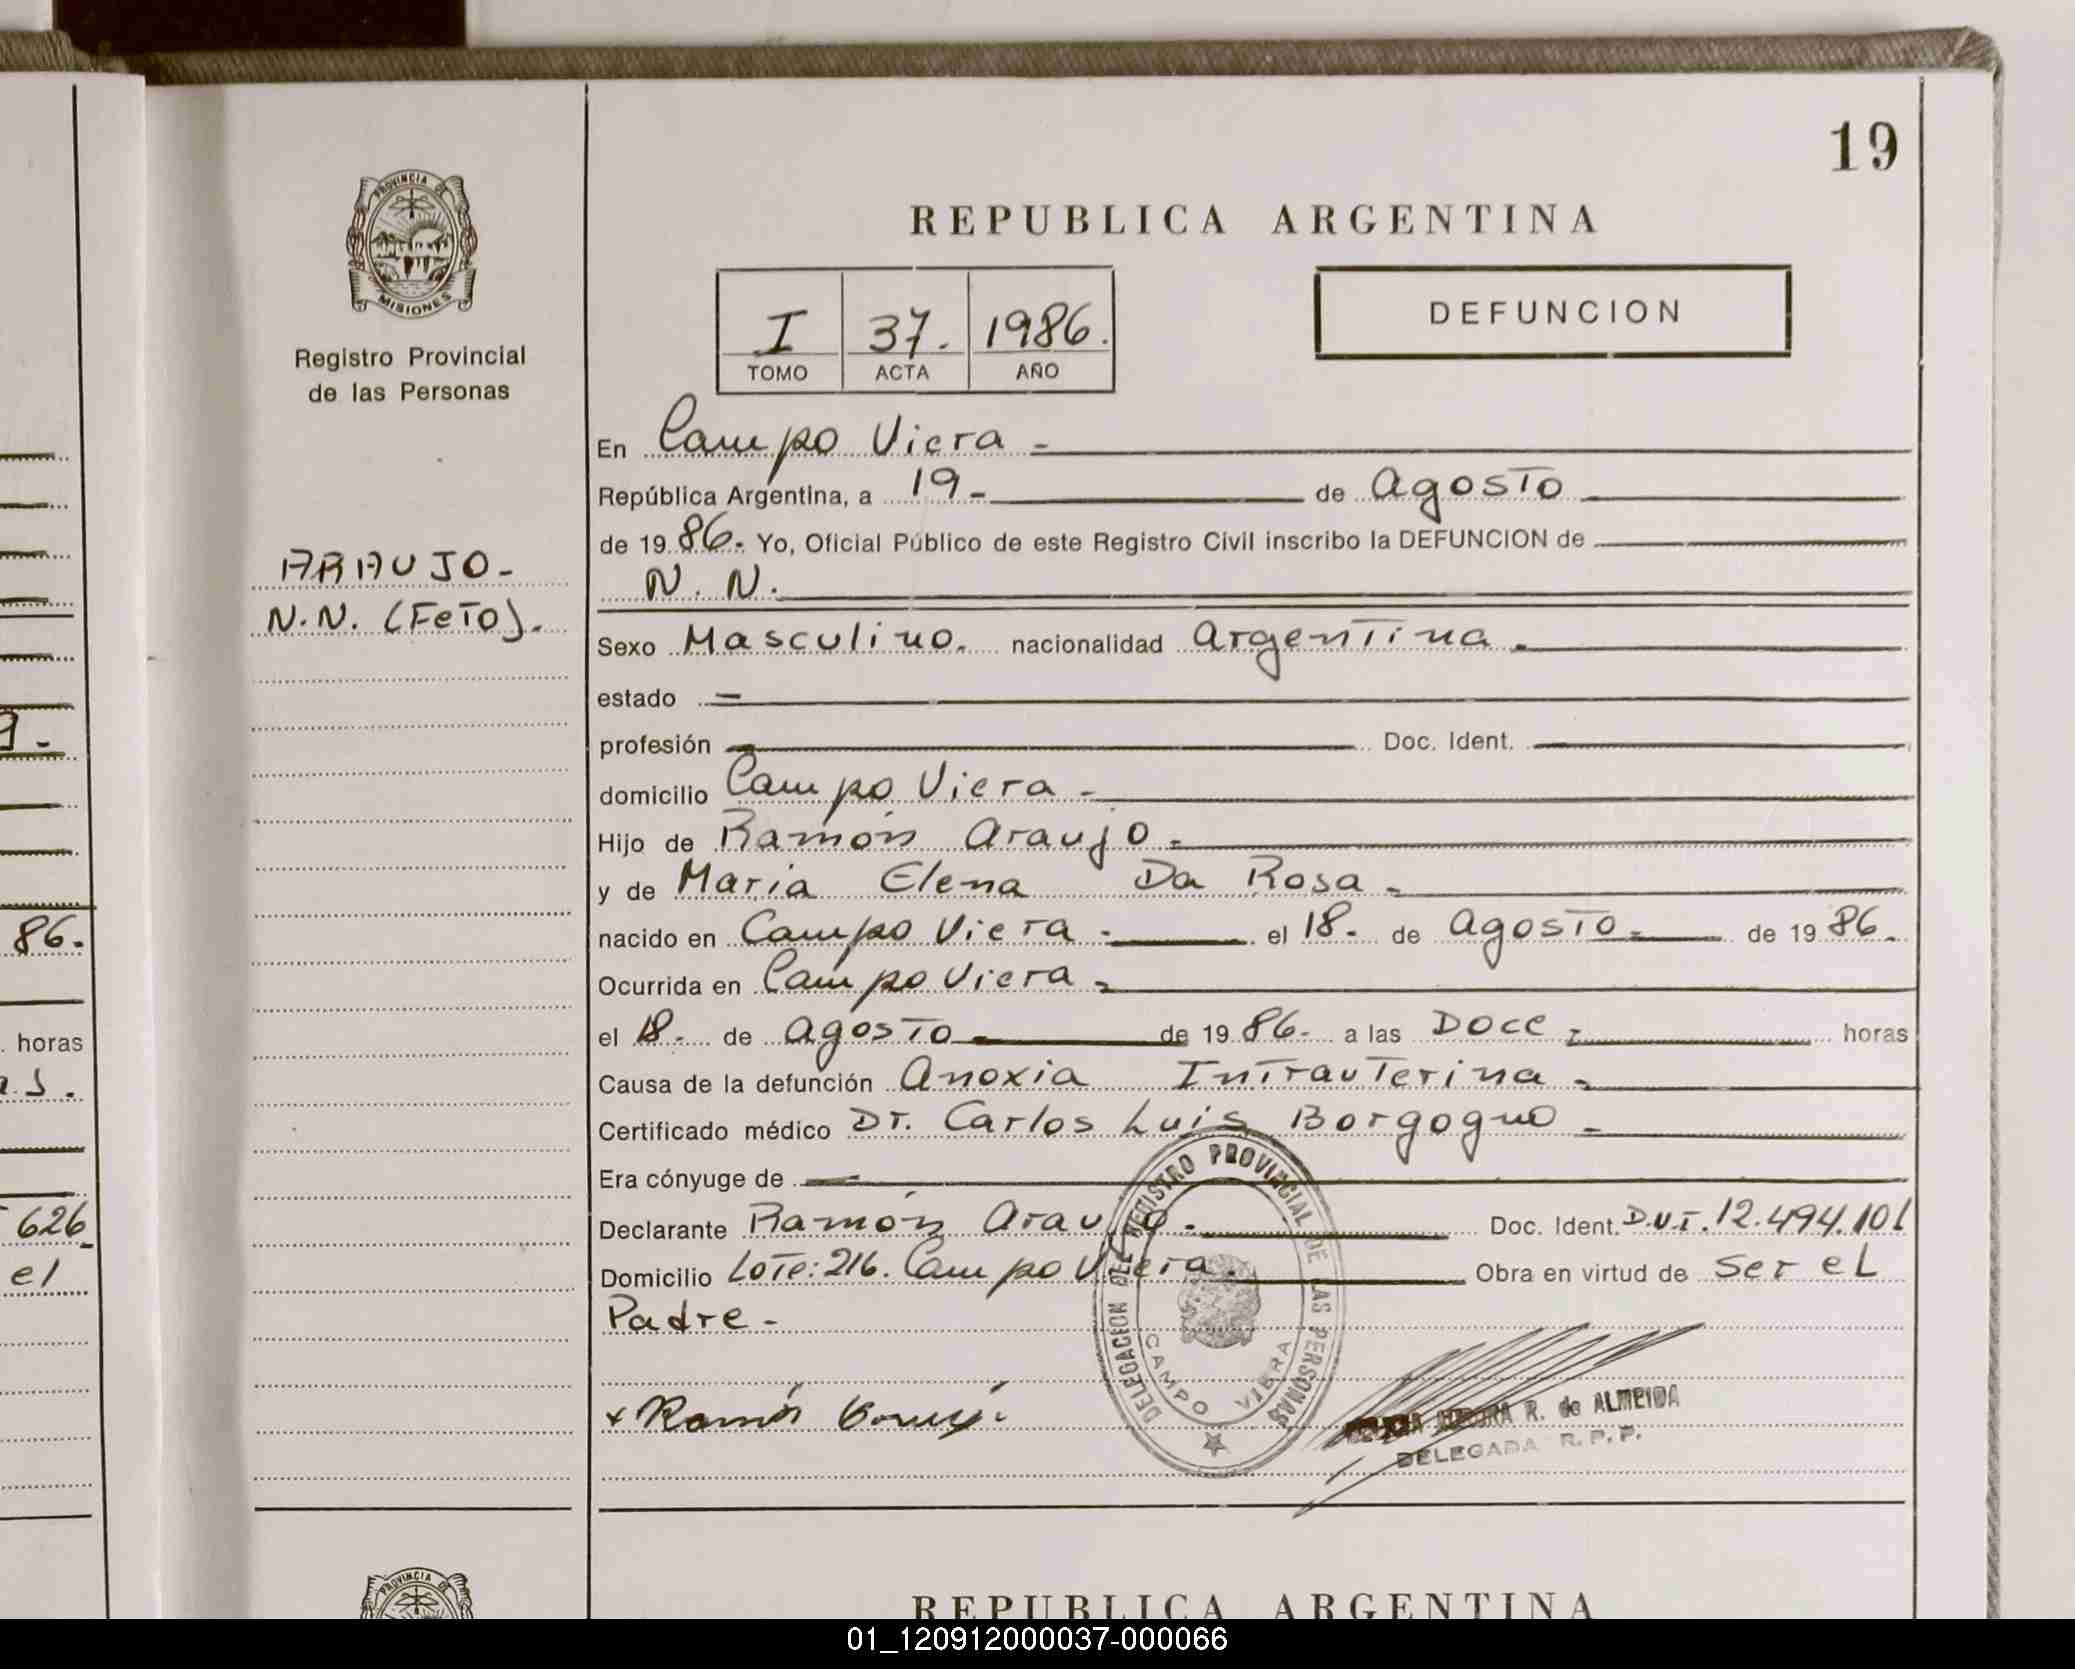 19
PROVINCIA DE
MISIONES
Registro Provincial
de las Personas
ARAUJO-
N.N. (FeTo).
REPUBLICA ARGENTINA
I 37. 1986.
TOMO ACTA AÑO
DEFUNCION
En Campo Viera -
República Argentina, a 19- de Agosto
de 19 86. Yo, Oficial Público de este Registro Civil inscribo la DEFUNCION de
N. N.
Sexo Masculino. nacionalidad Argentina.
estado -
profesión - Doc. Ident.
domicilio Campo Viera -
Hijo de Ramón Araujo -
y de Maria Elena Da Rosa -
nacido en Campo Viera - el 18. de Agosto. de 19 86.
Ocurrida en Campo Viera -
el 18. de Agosto - de 19 86. a las Doce - horas
Causa de la defunción Anoxia Intrauterina -
Certificado médico Dr. Carlos Luis Borgogno -
Era cónyuge de -
Declarante Ramón Araujo - Doc. Ident. D.U.I. 12.494.101
Domicilio Lote: 216. Campo Viera. Obra en virtud de Ser el
Padre -
DELEGACION DEL REGISTRO PROVINCIAL DE LAS PERSONAS
CAMPO VIERA
+ Ramón
R. de ALMEIDA
DELEGADA R.P.P.
9-
86.
horas
a s.
626
el
PROVINCIA DE
REPUBLICA ARGENTINA
01_120912000037-000066